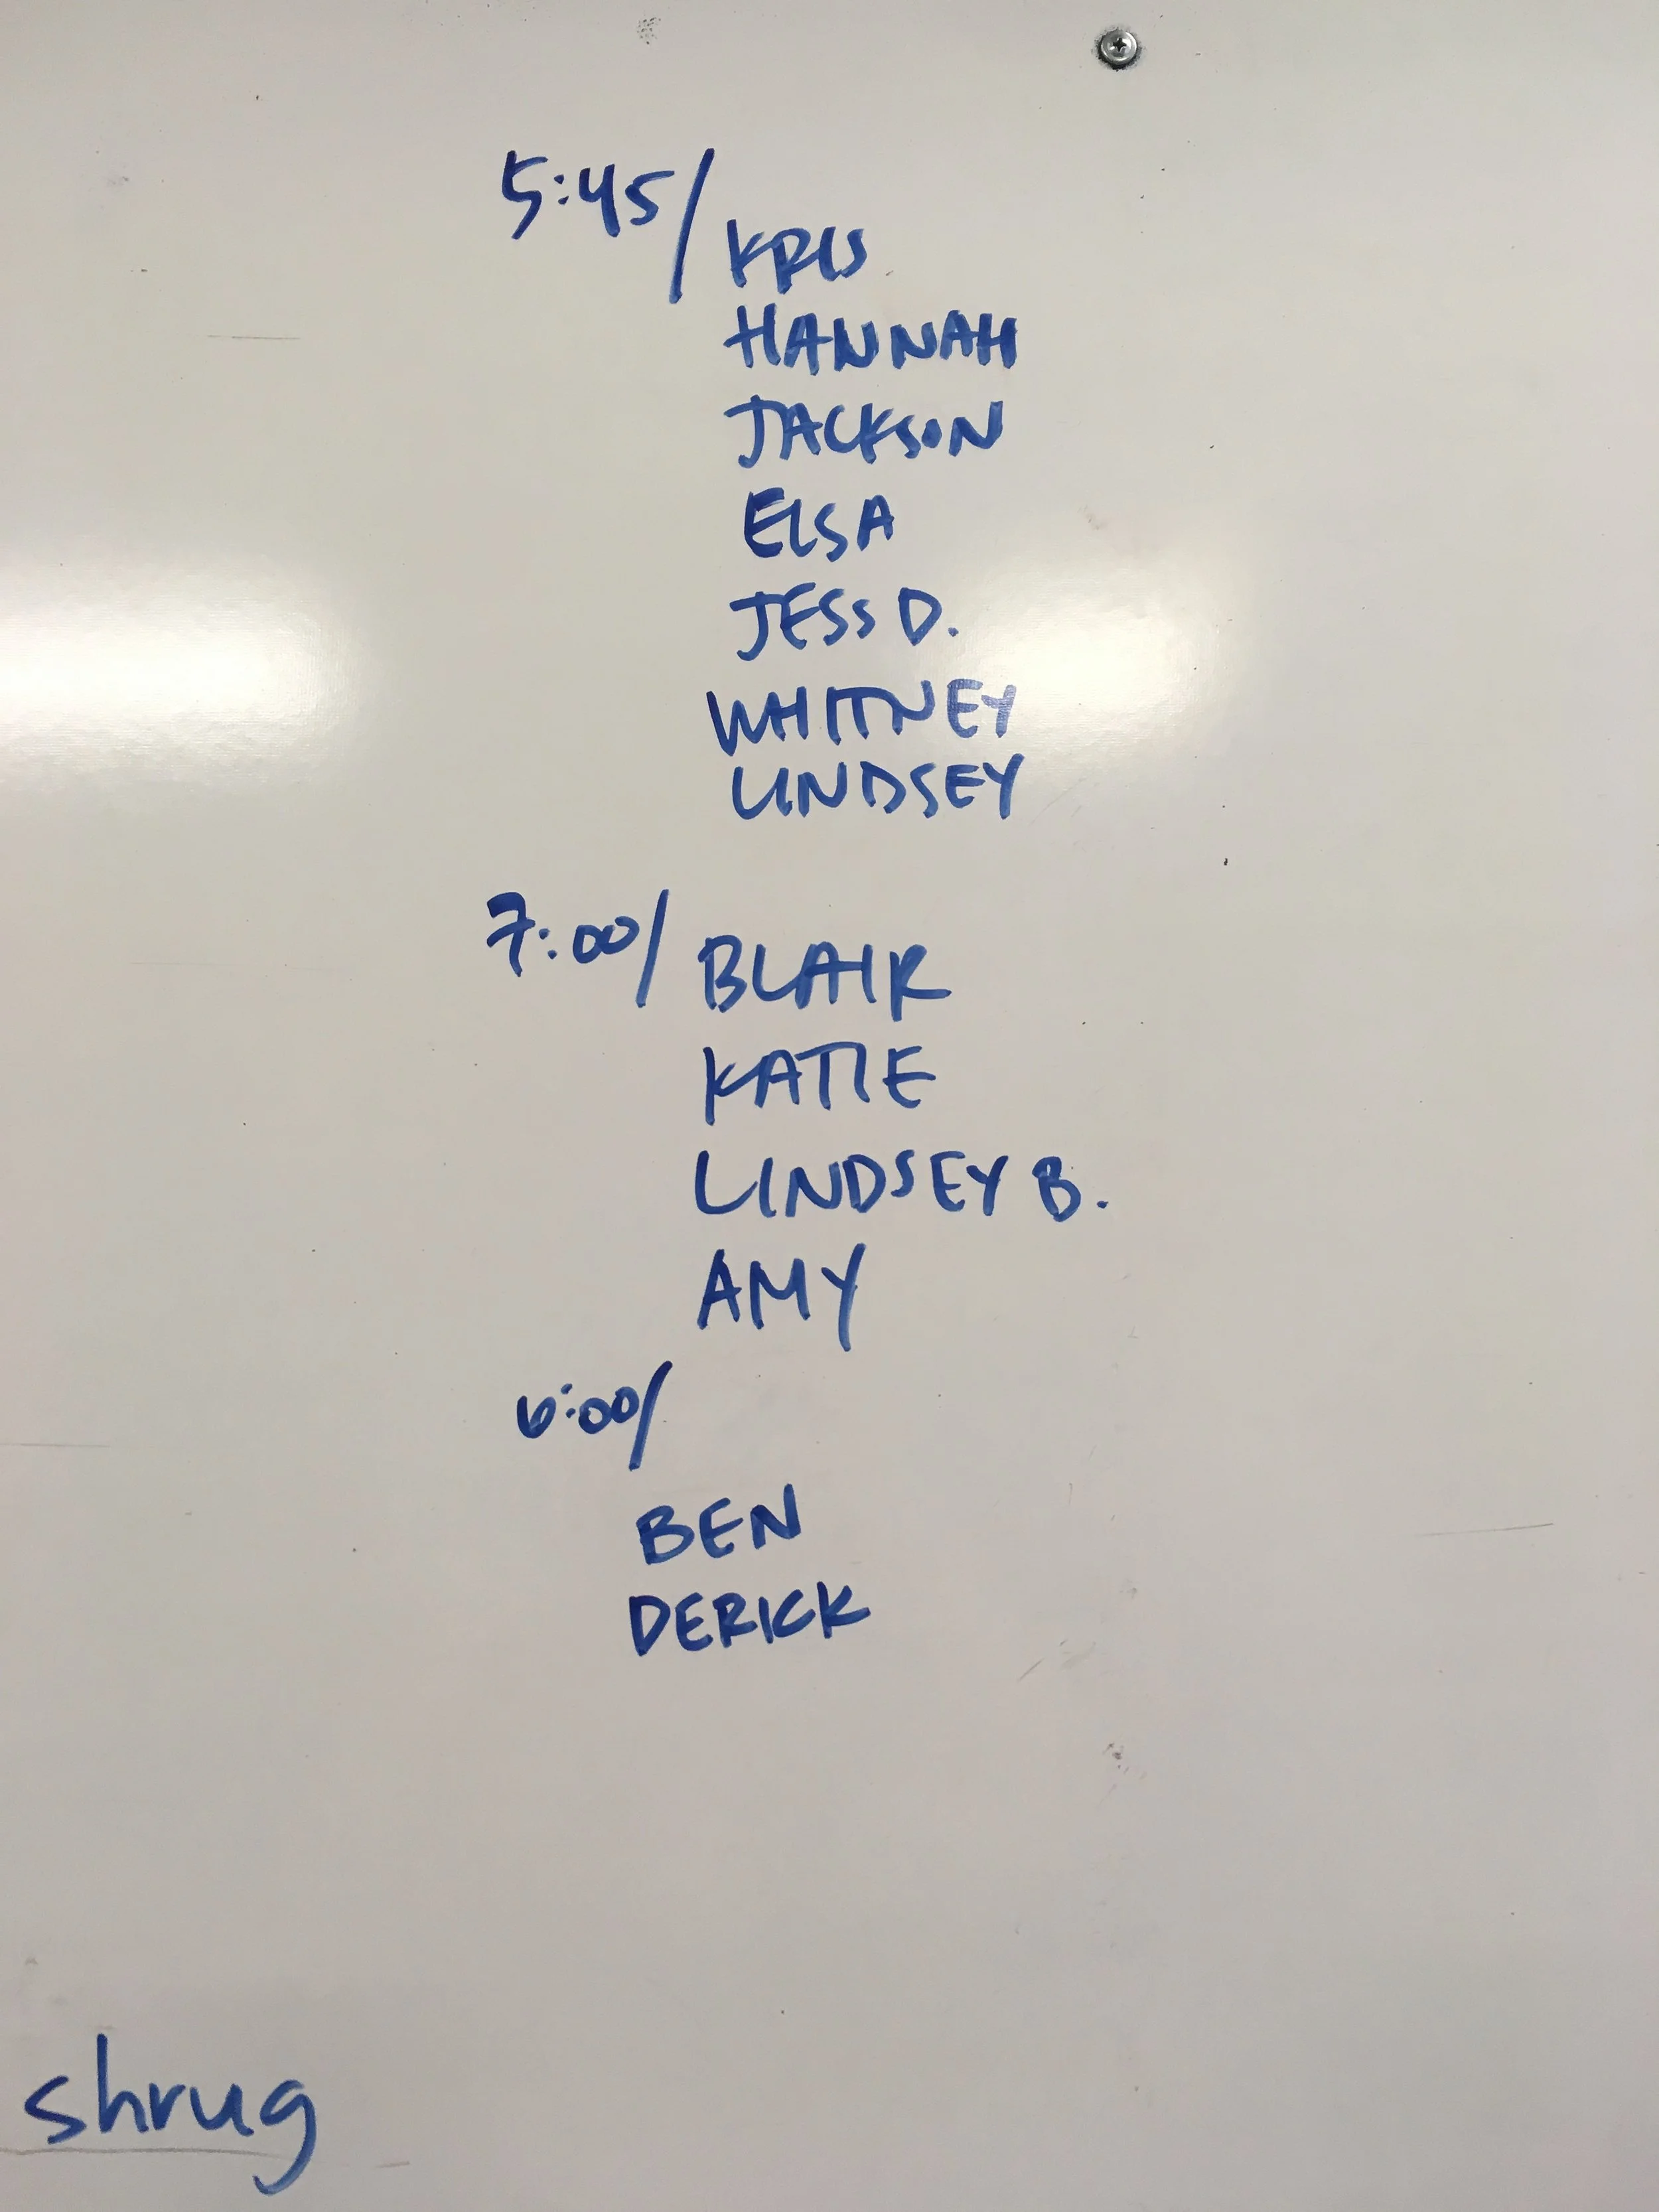 5:45/
KRIS
HANNAH
JACKSON
ELSA
JESS D.
WHITNEY
LINDSEY
7:00/ BLAIR
KATIE
LINDSEY B.
AMY
6:00/
BEN
DERICK
shrug